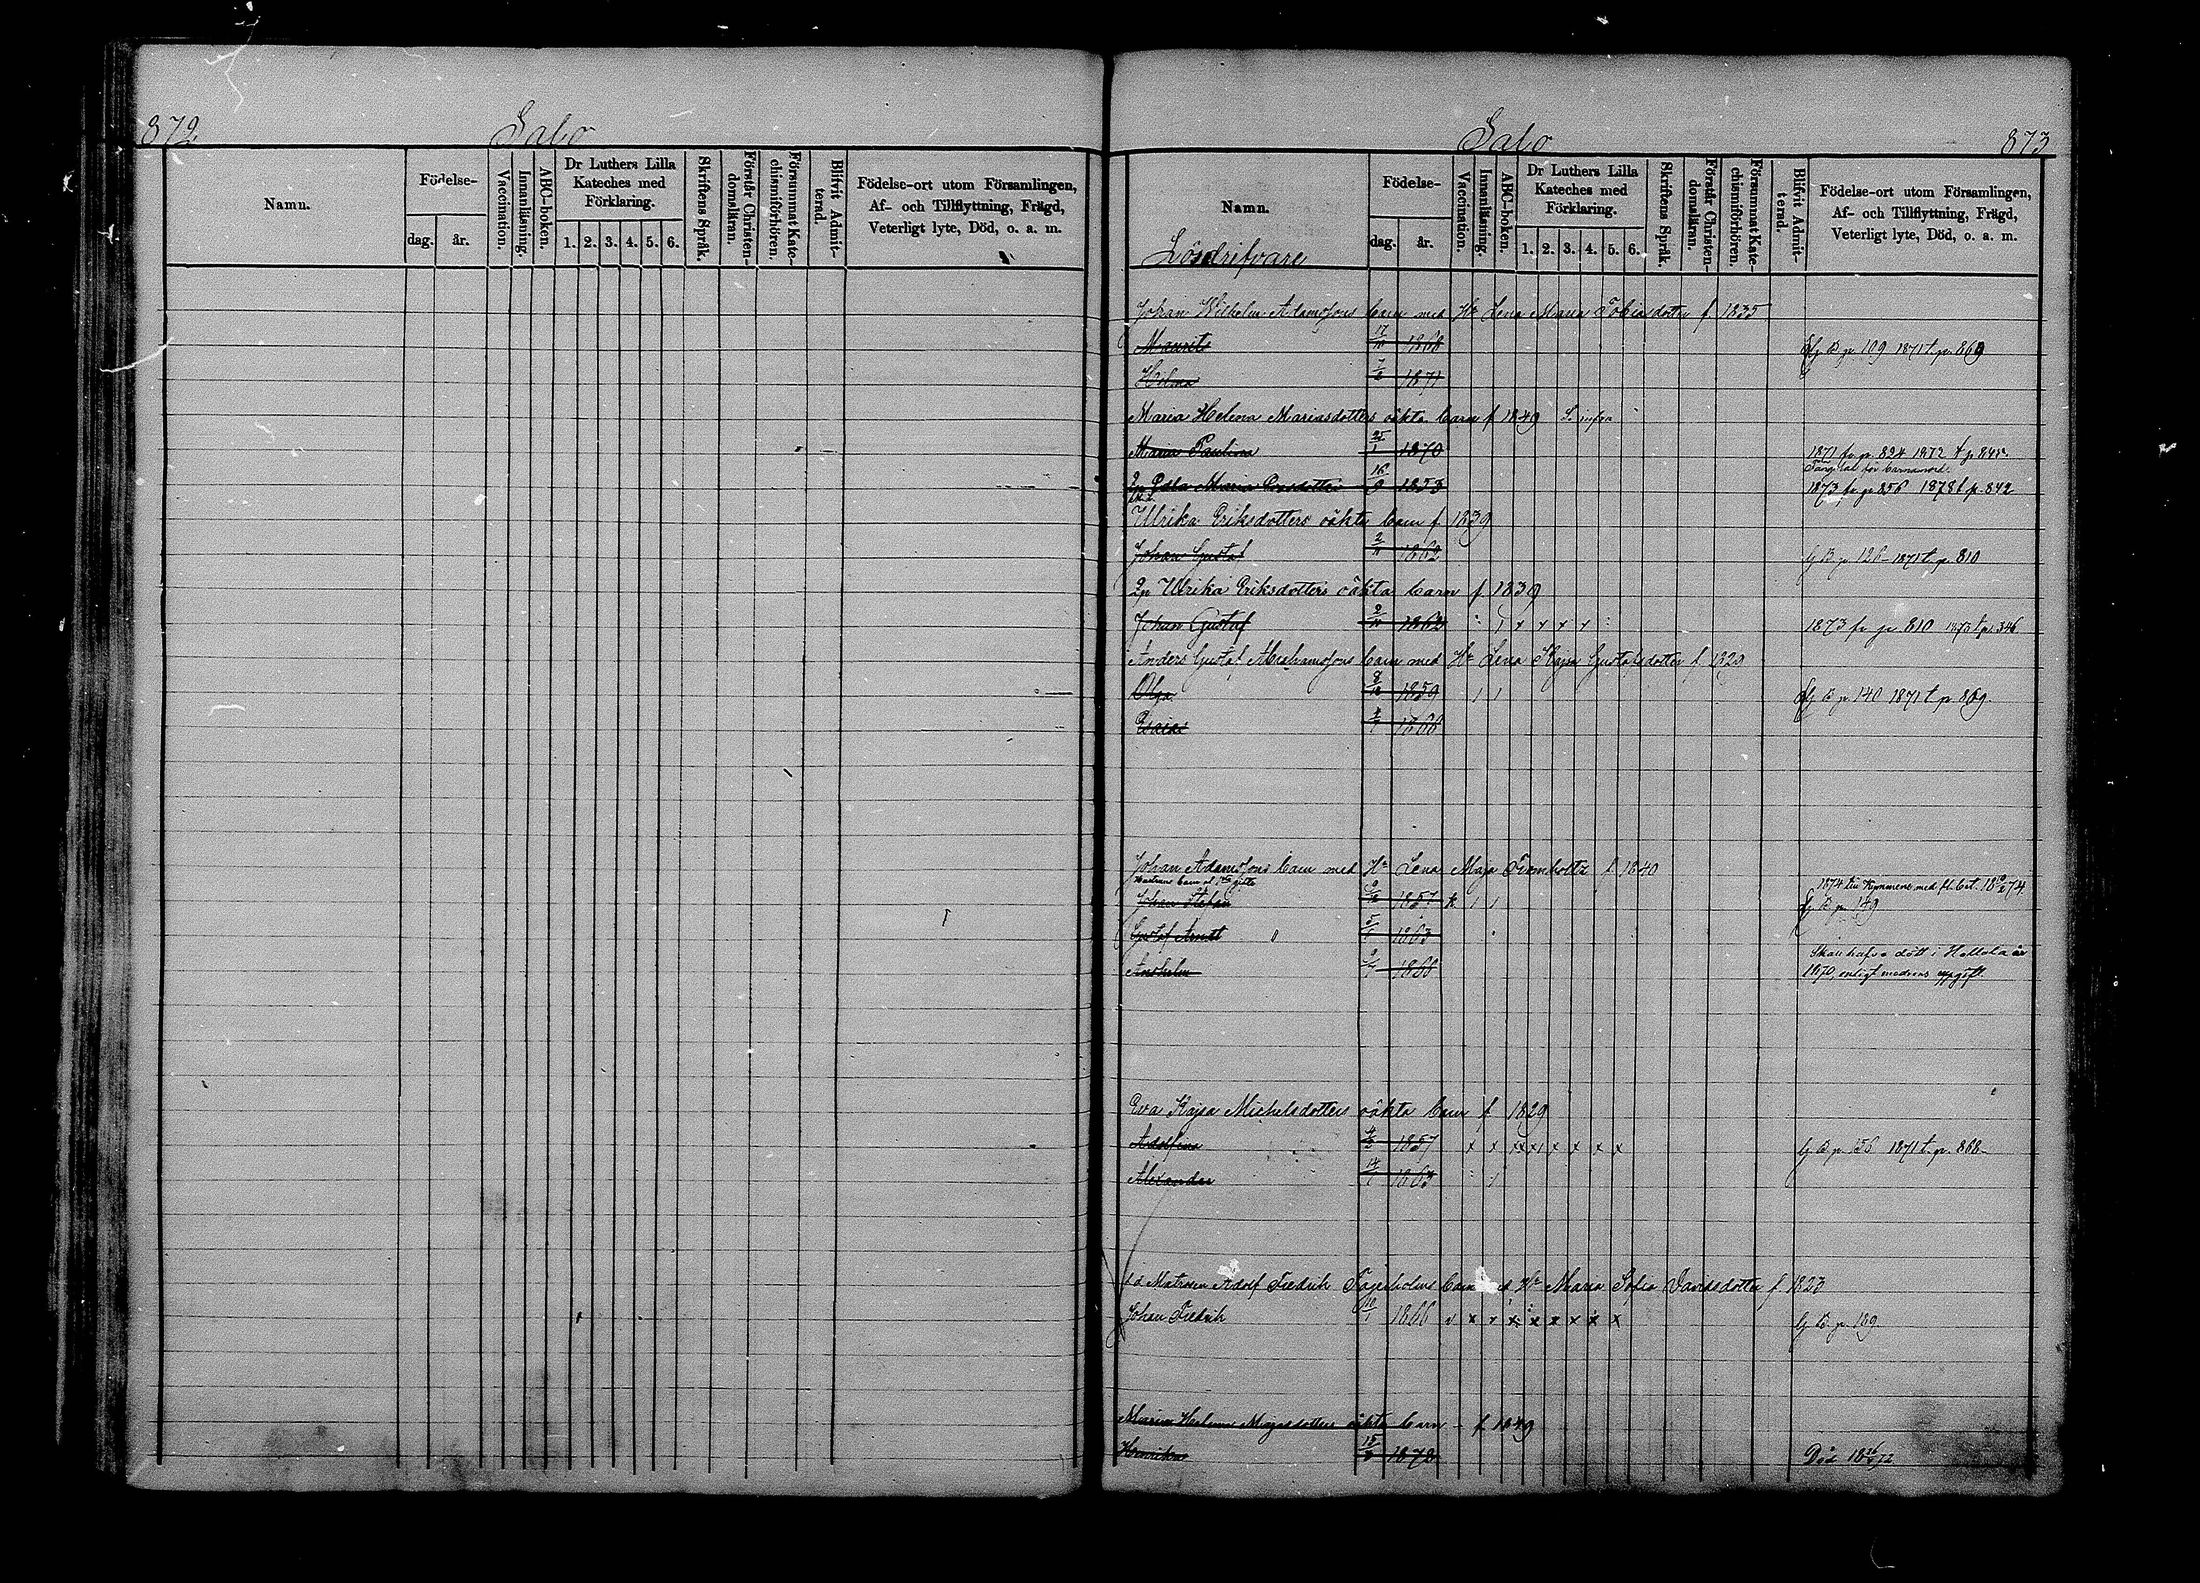 872
Salo
Namn.
Födelse-
dag. år.
Vaccination.
Innanläsning.
ABC-boken.
Dr Luthers Lilla
Kateches med
Förklaring.
1. 2. 3. 4. 5. 6.
Skriftens Språk.
Förstår Christen-
domsläran.
Försummat Kate-
chismiförhören.
Blifvit Admit-
terad.
Födelse-ort utom Församlingen,
Af- och Tillflyttning, Frägd,
Veterligt lyte, Död, o. a. m.
Salo
873
Namn.
Födelse-
dag. år.
Vaccination.
Innanläsning.
ABC-boken.
Dr Luthers Lilla
Kateches med
Förklaring.
1. 2. 3. 4. 5. 6.
Skriftens Språk.
Förstår Christen-
domsläran.
Försummat Kate-
chismiförhören.
Blifvit Admit-
terad.
Födelse-ort utom Församlingen,
Af- och Tillflyttning, Frägd,
Veterligt lyte, Död, o. a. m.
Lösdrifvare
Johan Wilhelm Adamssons barn med H. Lena Maria Tobiasdotter f. 1835
Maurits 1868 B p. 109 1871 t. p. 869
Hilma 1871
Maria Helena Mariasdotters oäkta barn f 1849
Maria Paulina 1870 1871 fr. p. 824 1872 t. p.
för barnamord.
Edla Maria 16/9 1853 1873 fr. p. 856 1878 t. p. 842
Ulrika Eriksdotters oäkta barn f 1839
Johan Gustaf 1862 B p. 126 1871 t. p. 810
Ulrika Eriksdotters oäkta barn f. 1839
Johan Gustaf 1862 x x x x 1873 fr. p. 810 1873 t. p. 346
Anders Gustaf Abrahamssons barn med H. Lena Kajsa Gustafsdotter f. 1829
Olga 1859 B p. 140 1871 t. p. 869.
Esaias 1866
Johan Adamssons barn med H. Lena Maja f. 1840
Hustruns barn gifte 1874 till Kymmene med fl. bet. 1874
Johan Stefan 1857 B p. 149
Gustaf Arndt 1863
Anshelm 1866 Skall hafva dött i Hollola år
1870, enligt modrens uppgift
Eva Kajsa Michelsdotters oäkta barn f 1829
Adolfina 1857 x x x x x x x x B p. 156 1871 t. p. 868
Alexander 14/1 1863
Matrosen Adolf Fredrik barn med H. Maria Sofia Davidsdotter f 1823
Johan Fredrik 1866 x x x x x x x B p. 169.
Maria Helena Majasdotters oäkta barn f 1849
Henrika 1872 Död 1872